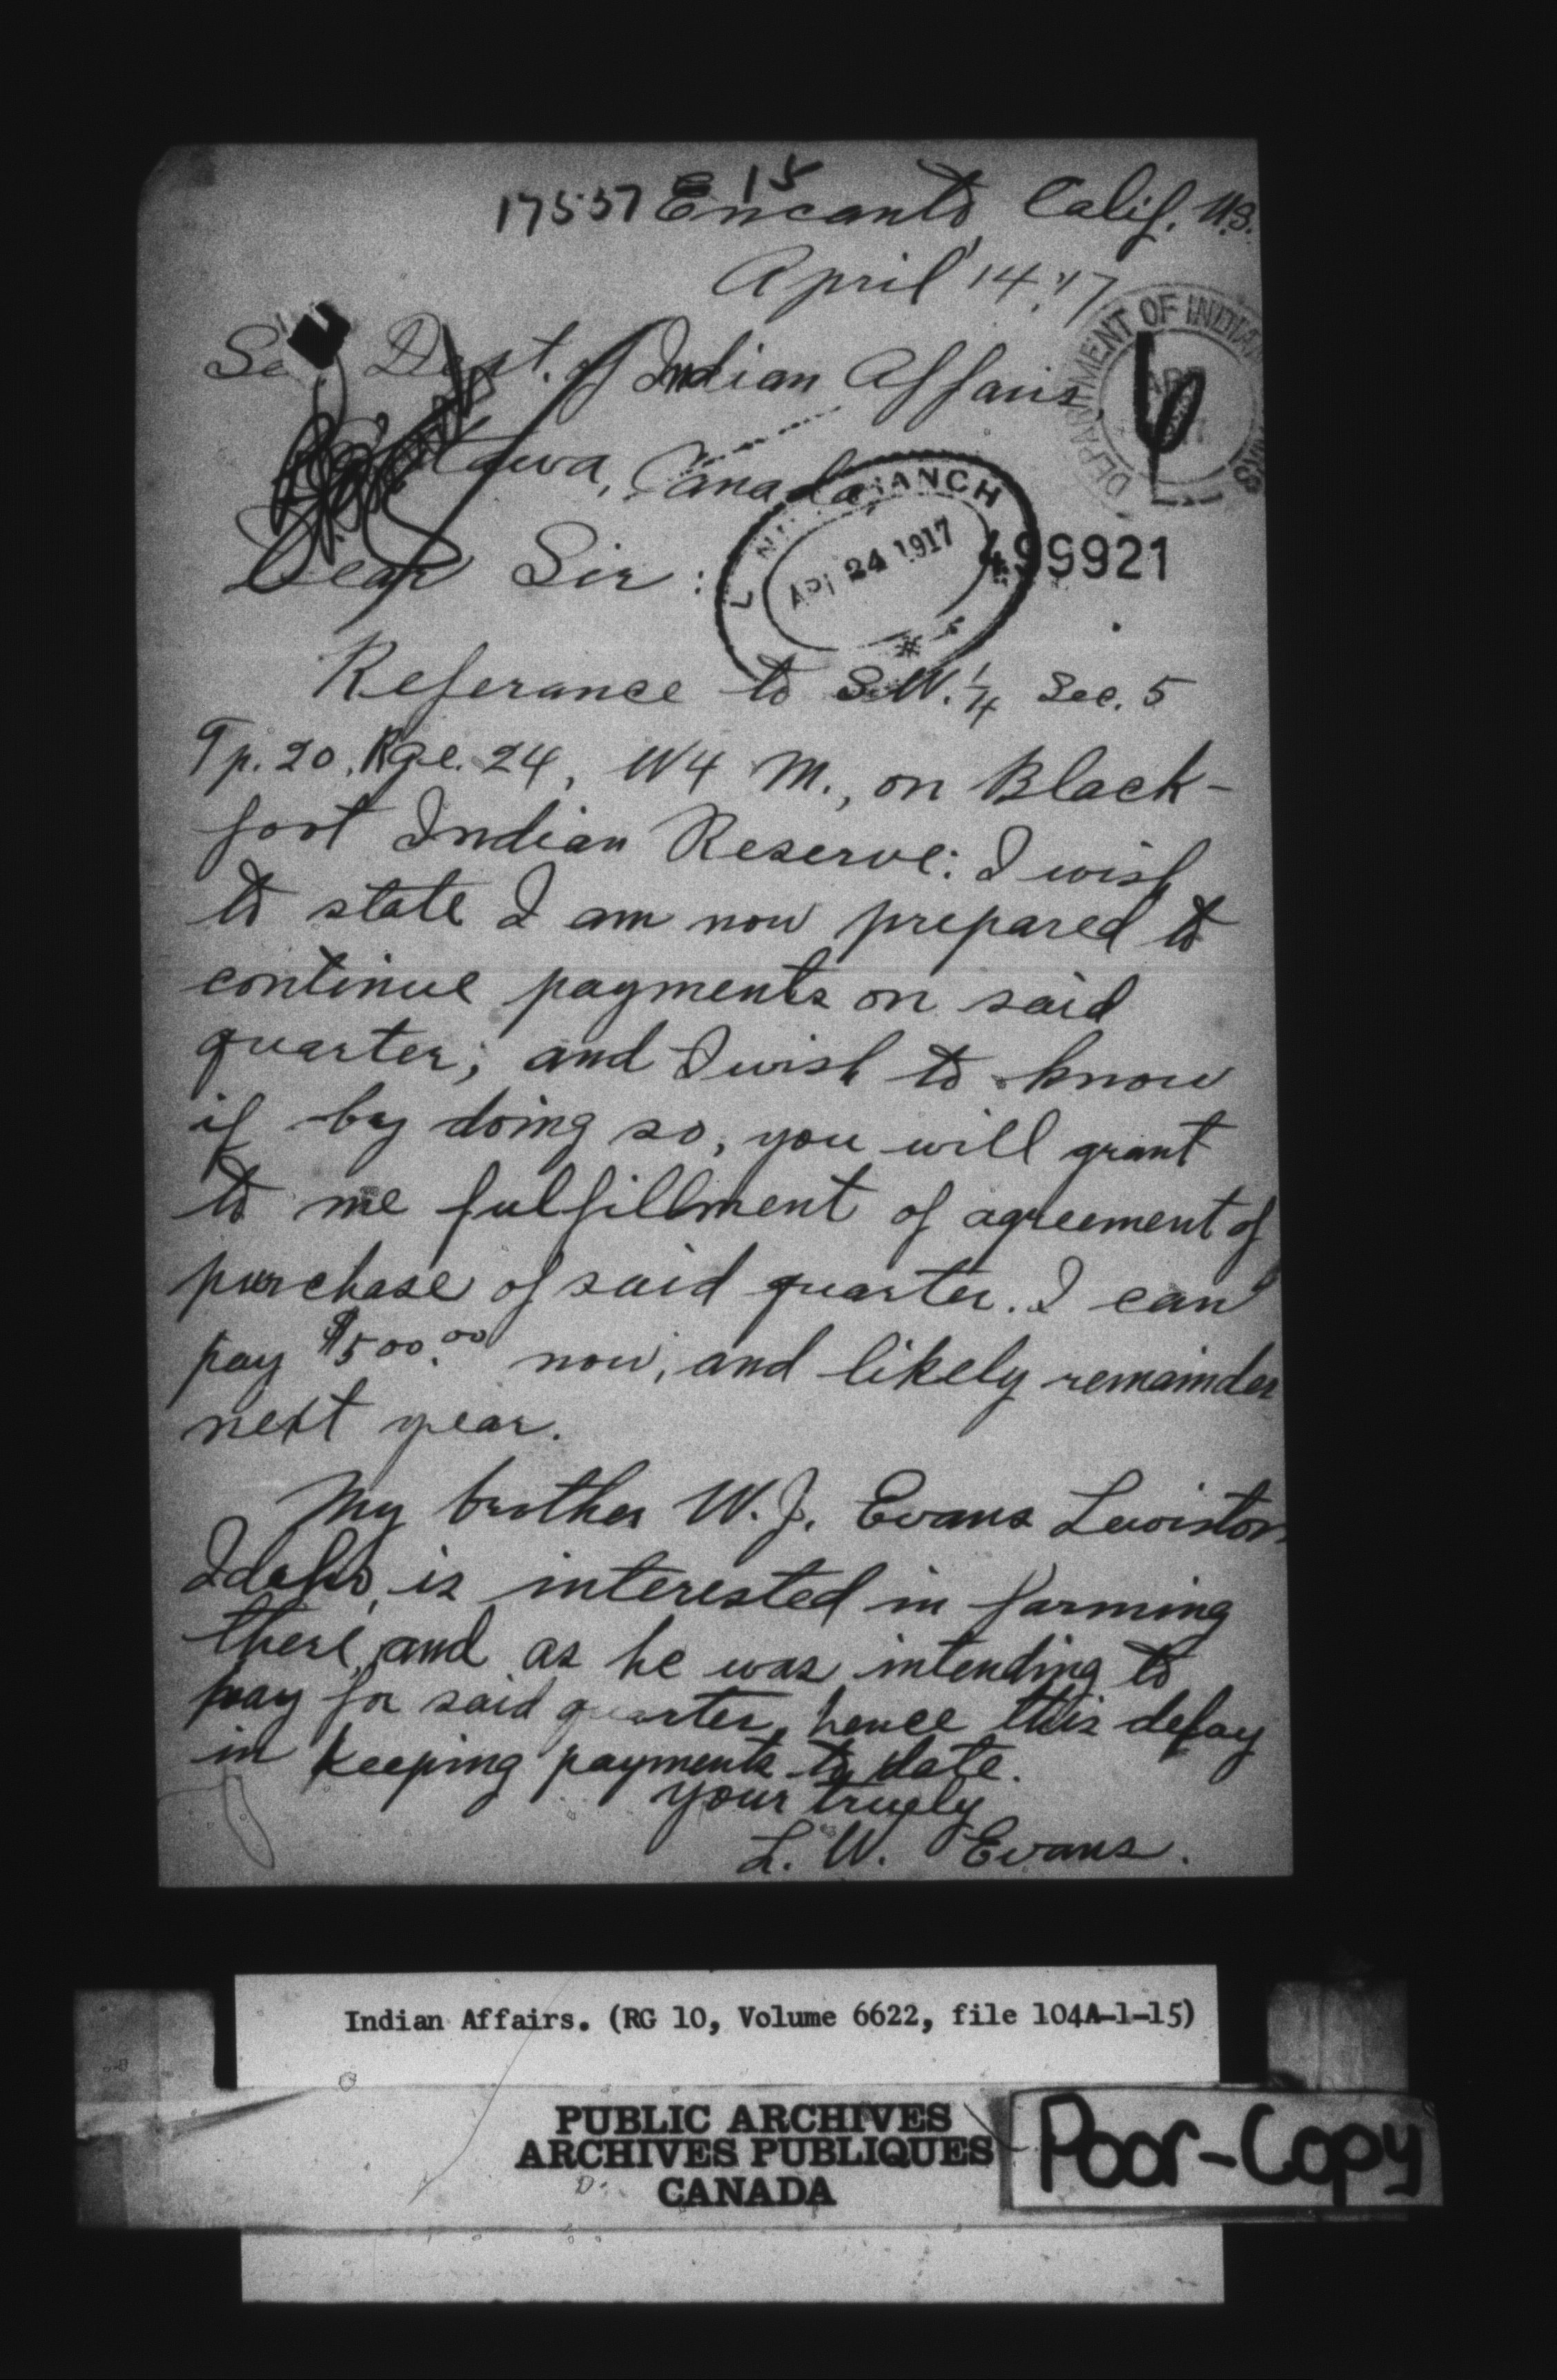 15
17537 Encanto, Calif. U.S.
April 14, '17
DEPARTMENT OF INDIAN
Dept. of Indian Affairs,
Ottawa, Canada
BRANCH
24 1917
499921
Dear Sir:
Referance to S.W. 1/4 Sec. 5
Tp. 20, Rge. 24, W4 M., on Black-
foot Indian Reserve: I wish
to state I am now prepared to
continue payments on said
quarter; and I wish to know
if by doing so, you will grant
to me fulfillment of agreement of
purchase of said quarter. I can
pay $500.00 now, and likely remainder
next year.
My brother W. J. Evans Lewiston
Idaho, is interested in farming
there, and as he was intending to
pay for said quarter, hence this delay
in keeping payments to date.
your truely
L. W. Evans.
Indian Affairs. (RG 10, Volume 6622, file 104A-1-15)
PUBLIC ARCHIVES
ARCHIVES PUBLIQUES
CANADA
Poor-Copy